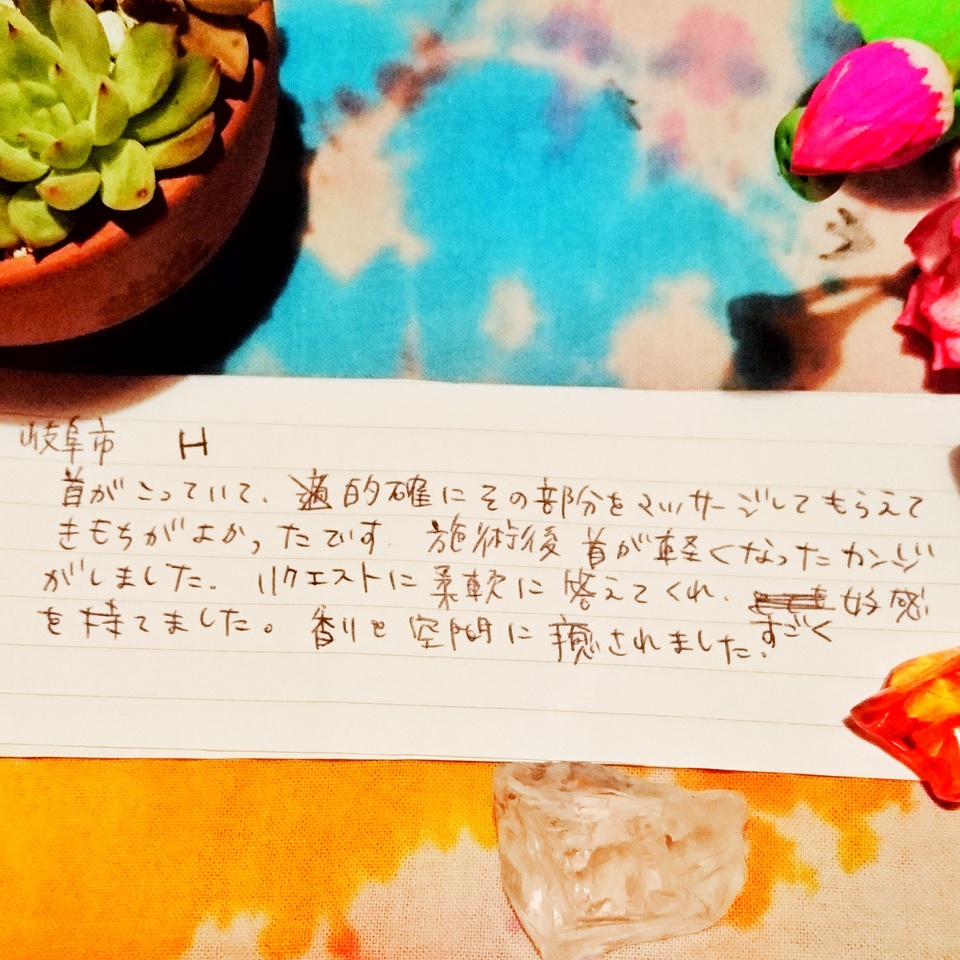 岐阜市 H
首がこっていて、適的確にその部分をマッサージしてもらえて
きもちがよかったです。施術後首が軽くなったカンジ
がしました。リクエストに柔軟に答えてくれ、すごく好感
を持てました。香りと空間に癒されました。